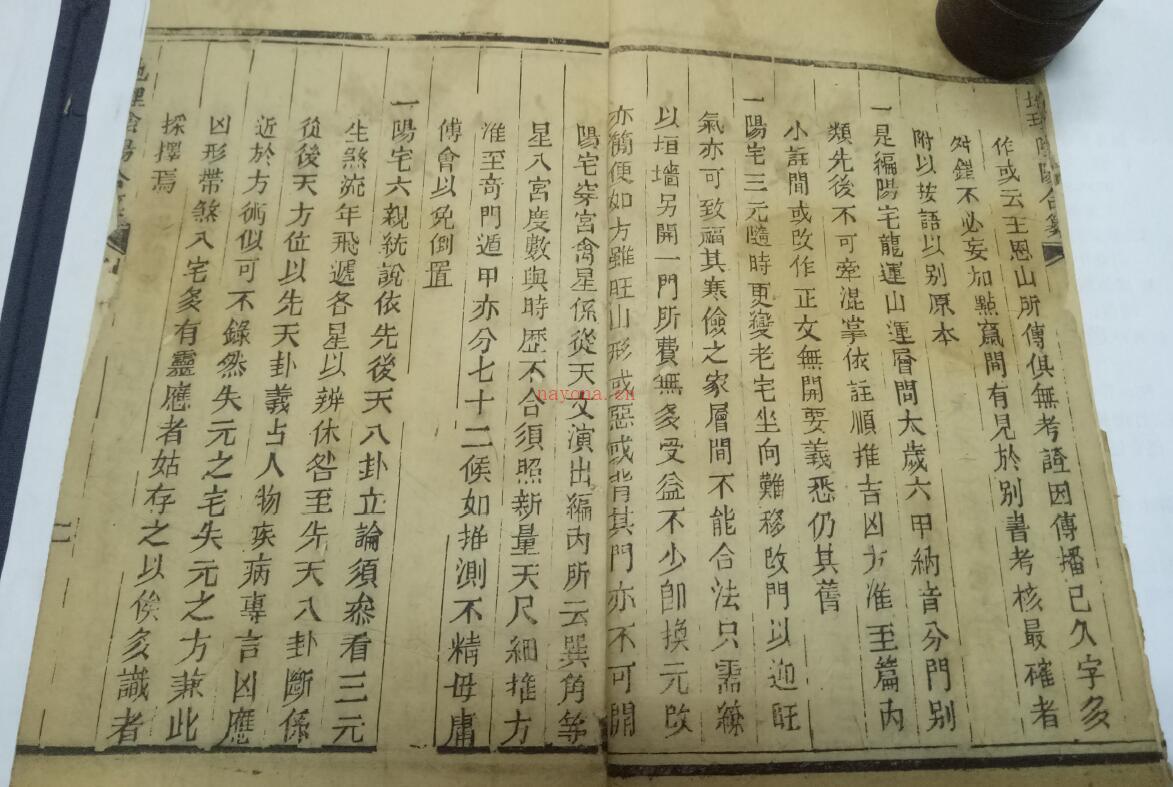 陰陽合纂
作或云王恩山所傳俱無考證因傳播已久字多
舛錯不必妄加點竄間有見於別書考核最確者
附以按語以别原本
一是編陽宅龍運山運層間太歲六甲納音分門別
類先後不可牽混掌依註順推吉凶方准至篇内
小註間或改作正文無開要義悉仍其舊
一陽宅三元隨時更變老宅坐向難移改門以迎旺
氣亦可致福其寒儉之家層間不能合法只需
以垣墙另開一門所費無多受益不少卽換元改
亦簡便如方雖旺山形或惡或背其門亦不可開
陽宅穿宮禽星係從天文演出編内所云巽角等
星八宮度數與時歷不合須照新量天尺細推方
准至奇門遁甲亦分七十二候如推測不精毋庸
傅會以免倒置
一陽宅六親統說依先後天八卦立論須叅看三元
生煞流年飛遁各星以辨休咎至先天八卦斷係
從後天方位以先天卦義占人物疾病專言凶應
近於方術似可不錄然失元之宅失元之方兼此
凶形帶煞入宅多有靈應者姑存之以俟多識者
採擇焉
地理陰陽合纂
nayona.cn